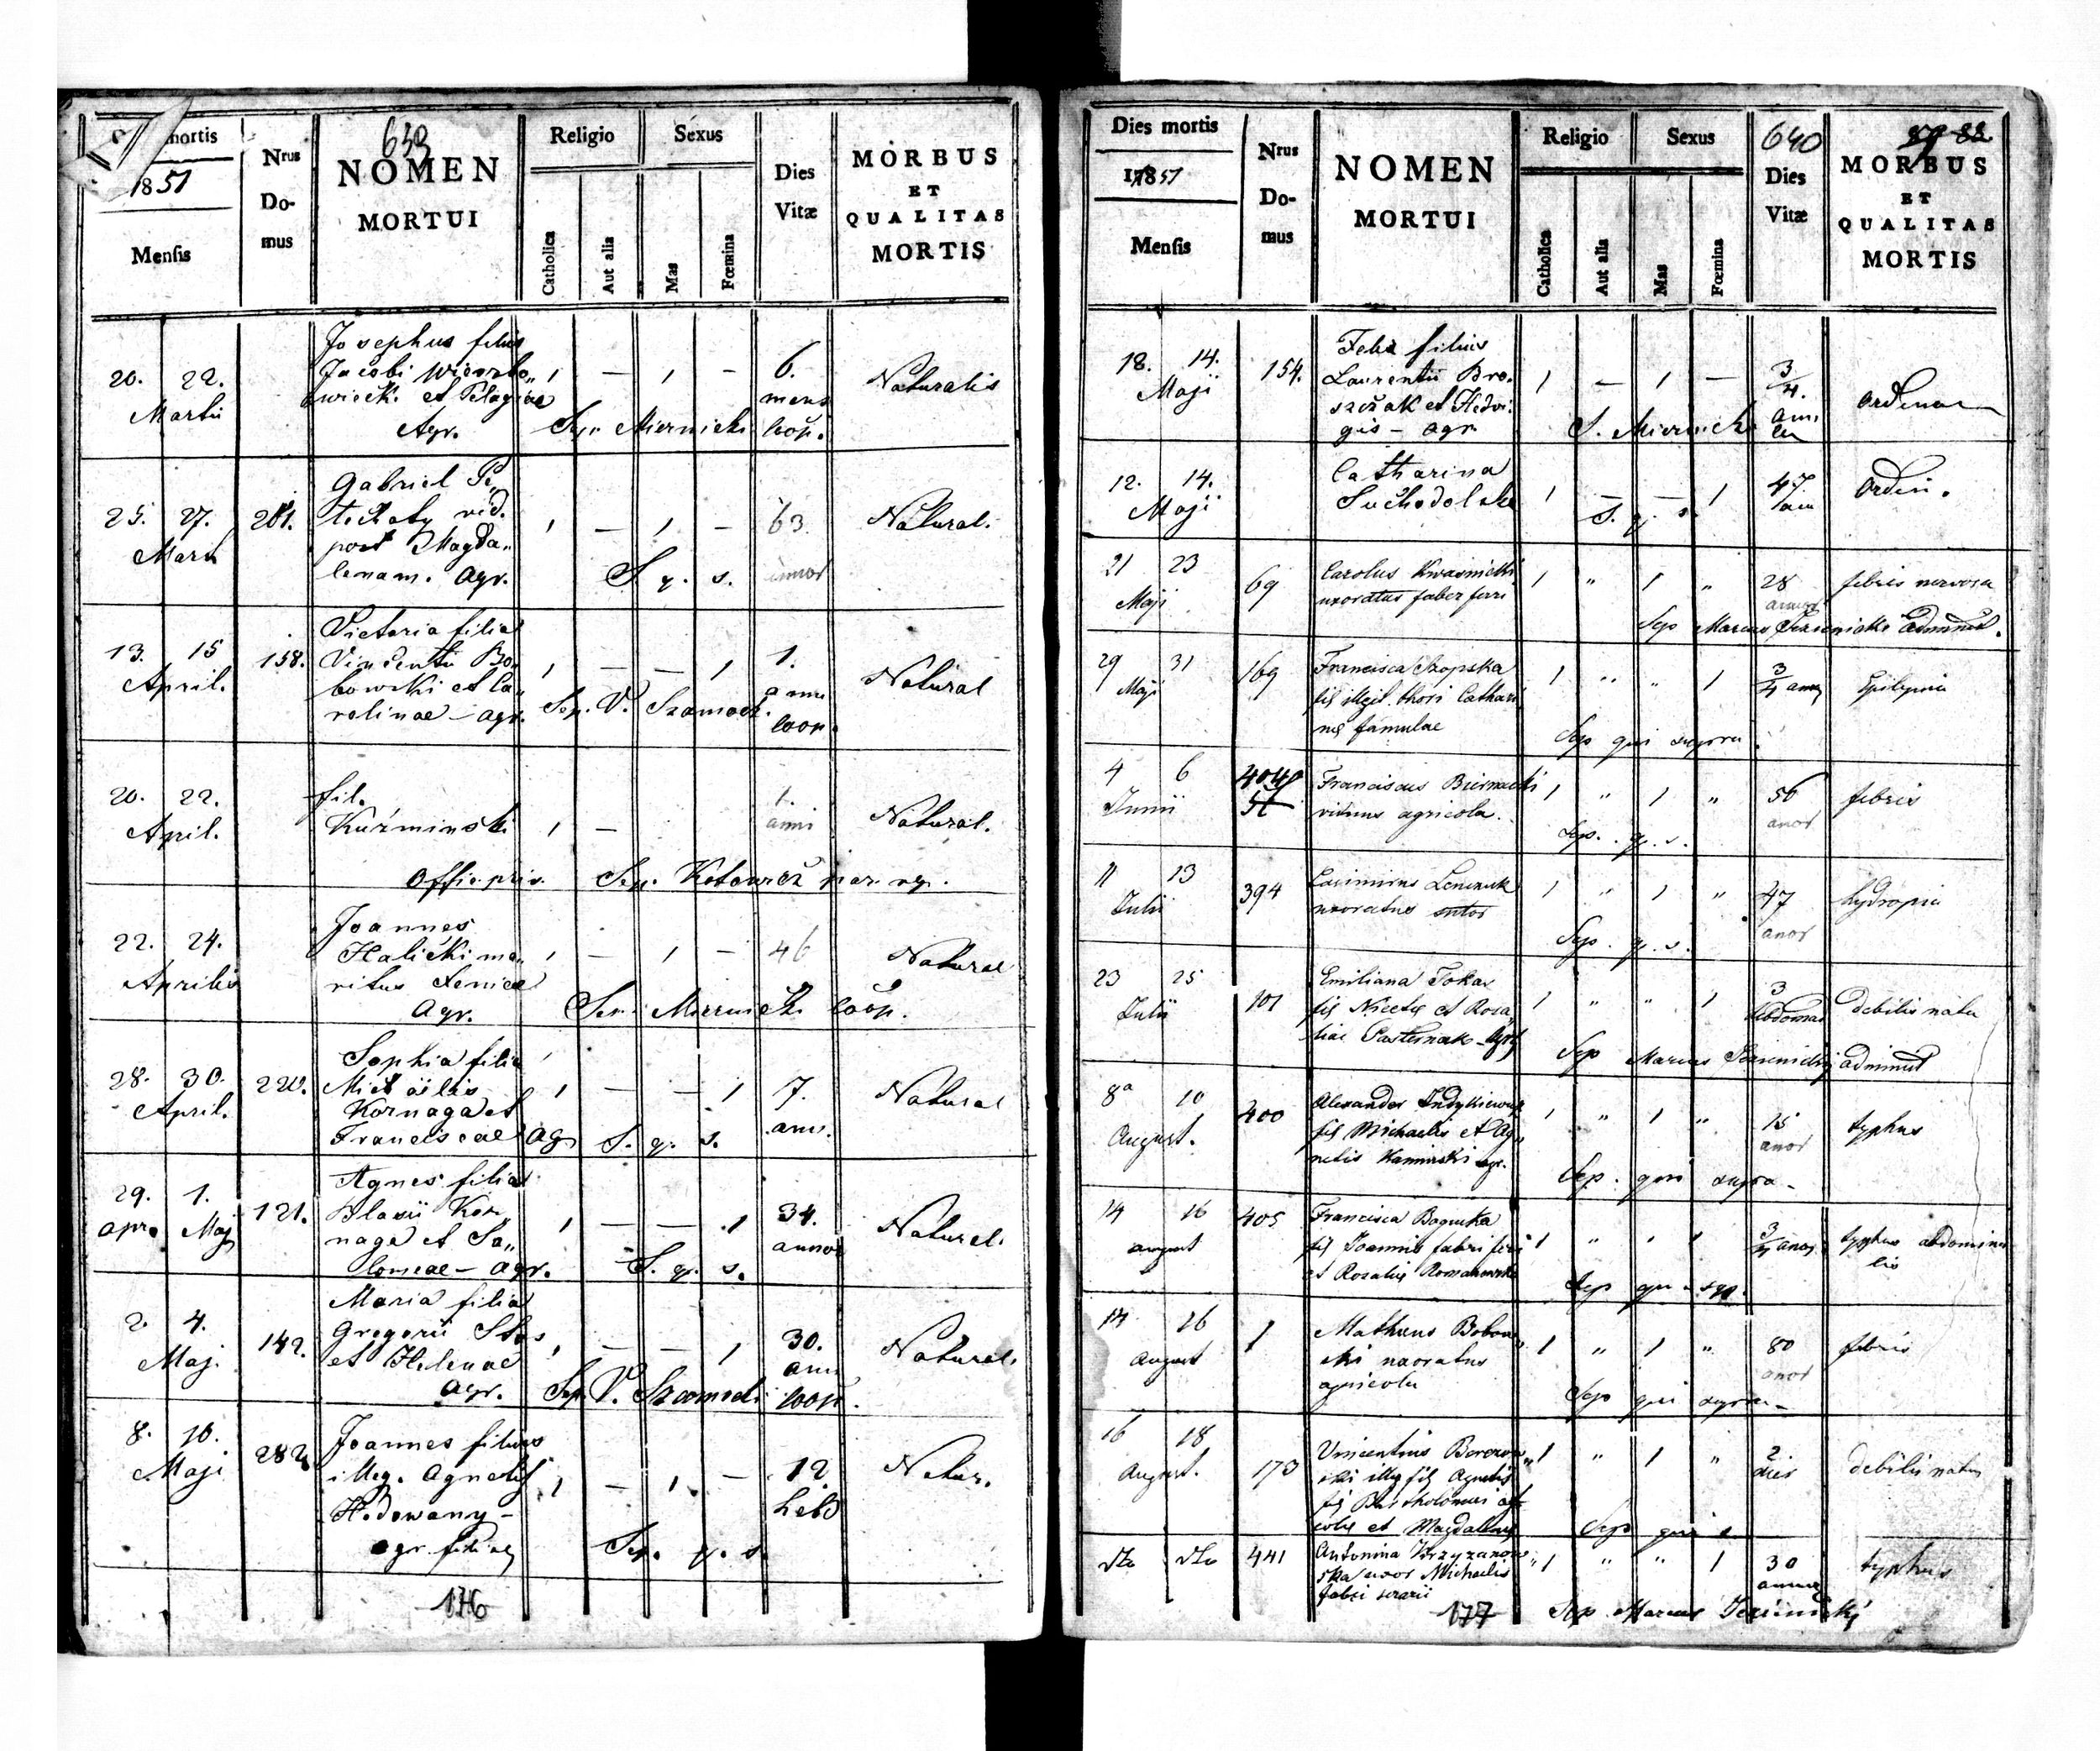 mortis
1851
Mensis
Nrus
Do-
mus
639
NOMEN
MORTUI
Religio
Catholica
Aut alia
Sexus
Mas
Fœmina
Dies
Vitæ
MORBUS
ET
QUALITAS
MORTIS
20. 22.
Martii
Josephus filius
Jacobi Wierzbo„
wiecki et Pelagiae
Agr.
1 — 1 —
6.
mens
Naturalis
Sep. Miernicki Coop.
25. 27.
Marti
281.
Gabriel Pe„
techaty vid.
post Magda„
lenam. Agr.
1 — 1 —
63.
annor
Natural.
S. q. s.
13. 15
April.
158.
Victoria filia
Vincentii Bo„
bowski et Ca„
rolinae – agr.
1 — — 1
1.
anni
Natural
Sep. V. Szamock. Coop.
20. 22.
April.
fil.
Kuźminski
1 —
1.
anni
Natural.
Offic. priv. Sep.
22. 24.
Aprilis
Joannes
Halicki ma„
ritus
Agr.
1 — 1 —
46
Natural
Sep. Miernicki Coop.
28. 30.
April.
220.
Sophia filia
Michaelis
Kornaga et
Franciscae Ag
1 — — 1
7.
ann.
Natural
S. q. s.
29. 1.
apr. Maj
121.
Agnes filia
Blasii Kor„
naga et Sa„
lomeae – Agr.
1 — — 1
34.
annor
Natural.
S. q. s.
2. 4.
Maj.
142.
Maria filia
Gregorii
et Helenae
agr.
1 — — 1
30.
ann
Natural.
Sep. V. Szamocki Coop.
8. 10.
Maji
282
Joannes filius
illeg. Agnetis
Hodowany –
agr. filiae
1 — 1 —
12
hebd
Natur.
Sep. q. s.
176
Dies mortis
1851
Mensis
Nrus
Do-
mus
NOMEN
MORTUI
Religio
Catholica
Aut alia
Sexus
Mas
Fœmina
640
Dies
Vitæ
MORBUS
ET
QUALITAS
MORTIS
18. 14.
Maji
154.
Felix filius
Laurentii Bro„
szczak et Hedvi„
gis – agr
1 — 1 —
3/4.
ordinar
S. Miernicki
12. 14.
Maji
Catharina
Suchodolska
1 — — 1
47
Ordin.
S. q. s.
21 23
Maji
69
Carolus Kwasnicki
uxoratus faber ferri
1 " 1 "
28
annor
febris nervosa
Sep Marcus
29 31
Maji
169
Francisca Szopska
fil illegit. thori Cathari
nae famulae
1 " " 1
3/4 anni
Epilepsia
Sep qui supra
4 6
Junii
Franciscus Biernacki
viduus agricola.
1 " 1 "
56
anor
febris
Sep. q. s.
11 13
Julii
394
Casimirus
uxoratus sutor
1 " 1 "
47
anor
hydropsia
Sep. q. s.
23 25
Julii
101
Emiliana Tokar
fil Nicetae et Rosa„
liae Pasternak – Agr
1 " " 1
3
hebdomad
debilis nata
Sep Marcus
8a 10
August.
400
Alexander Indykiewicz
fil Michaelis et Ag„
netis Kaminski agr.
1 " 1 "
15
anor
typhus
Sep. qui supra –
14 16
august
405
Francisca
fil Joannis fabri ferri
et Rosaliae Romanowska
3/4 anor
typhus abdomina
lis
Sep qui sup.
14 16
August
1
Matheus Bobow„
ski uxoratus
agricola
1 " 1 "
80
anor
febris
Sep qui supra –
16 18
August.
173
Vincentius Berezow„
ski illeg fil Agnetis
fil Bartholomei agri
colae et Magdalenae
1 " 1 "
2
dies
debilis natus
Sep qui s
dto dto
441
Antonina Krzyzanow„
ska uxor Michaelis
fabri serarii
1 " " 1
30
annor
typhus
Sep. Marcus
177